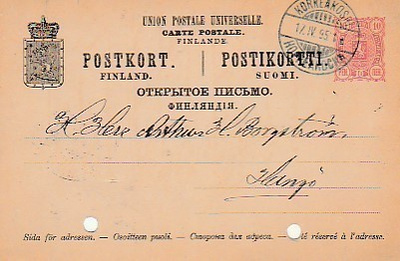 UNION POSTALE UNIVERSELLE.
CARTE POSTALE.
FINLANDE.
POSTKORT. POSTIKORTTI.
FINLAND. SUOMI.
ОТКРЫТОЕ ПИСЬМО.
ФИНЛЯНДІЯ.
10 10
17.IV.95
Herr Arthur H. Borgström,
Hangö
Sida för adressen. — Osoitteen puoli. — Сторона для адреса. — té réservé à l'adresse.